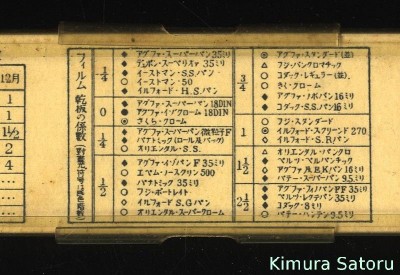 12月
1
1
1½
2
4
フィルム
乾板の係数
-1/4
◆ アグファ・スーパー・パン 35ミリ
◆ デュポン・スーペリオア 35ミリ
◆ イーストマン・S.S.パン
○ イーストマン・50
◆ イルフォード・H.S.パン
0
◆ アグファ・スーパー・パン 18DIN
◆ アグファ・イゾクローム 18DIN
◎ さくら・クローム
1/4
◆ アグファ・スーパーパン(微粒子F
◆ パナトミック(ロール及パック)
◇ オリエンタル・S.S.
1/2
◆ アグファ・イゾパンF 35ミリ
○ エベム・ノースクリン 500
◆ パナトミック 35ミリ
○ フジ・ポートレイト
◇ イルフォード S.G.パン
○ オリエンタル・スーパークローム
3/4
◎ アグファ・スタンダード(盤)
△ フジ・パンクロマチック
○ コダック・レギュラー(盤)
○ きく・クローム
◆ アグファ・ノボパン 16ミリ
◆ コダック・S.S.パン 16ミリ
1
○ フジ・スタンダード
◎ イルフォード・スクリーンド 270
◇ イルフォード・S.R.パン
1½
△ オリエンタル・パンクロ
◆ ペルツ・ペルパンチック
◇ アグファ・M.B.Kパン 16ミリ
◇ パテー・スーパーパン 9.5ミリ
2½
◆ アグファ・フィノパンFF 35ミリ
◆ ペルツ・レクテパン 35ミリ
◆ コダック・8ミリ
◇ パテー・パンテン 9.5ミリ
Kimura Satoru